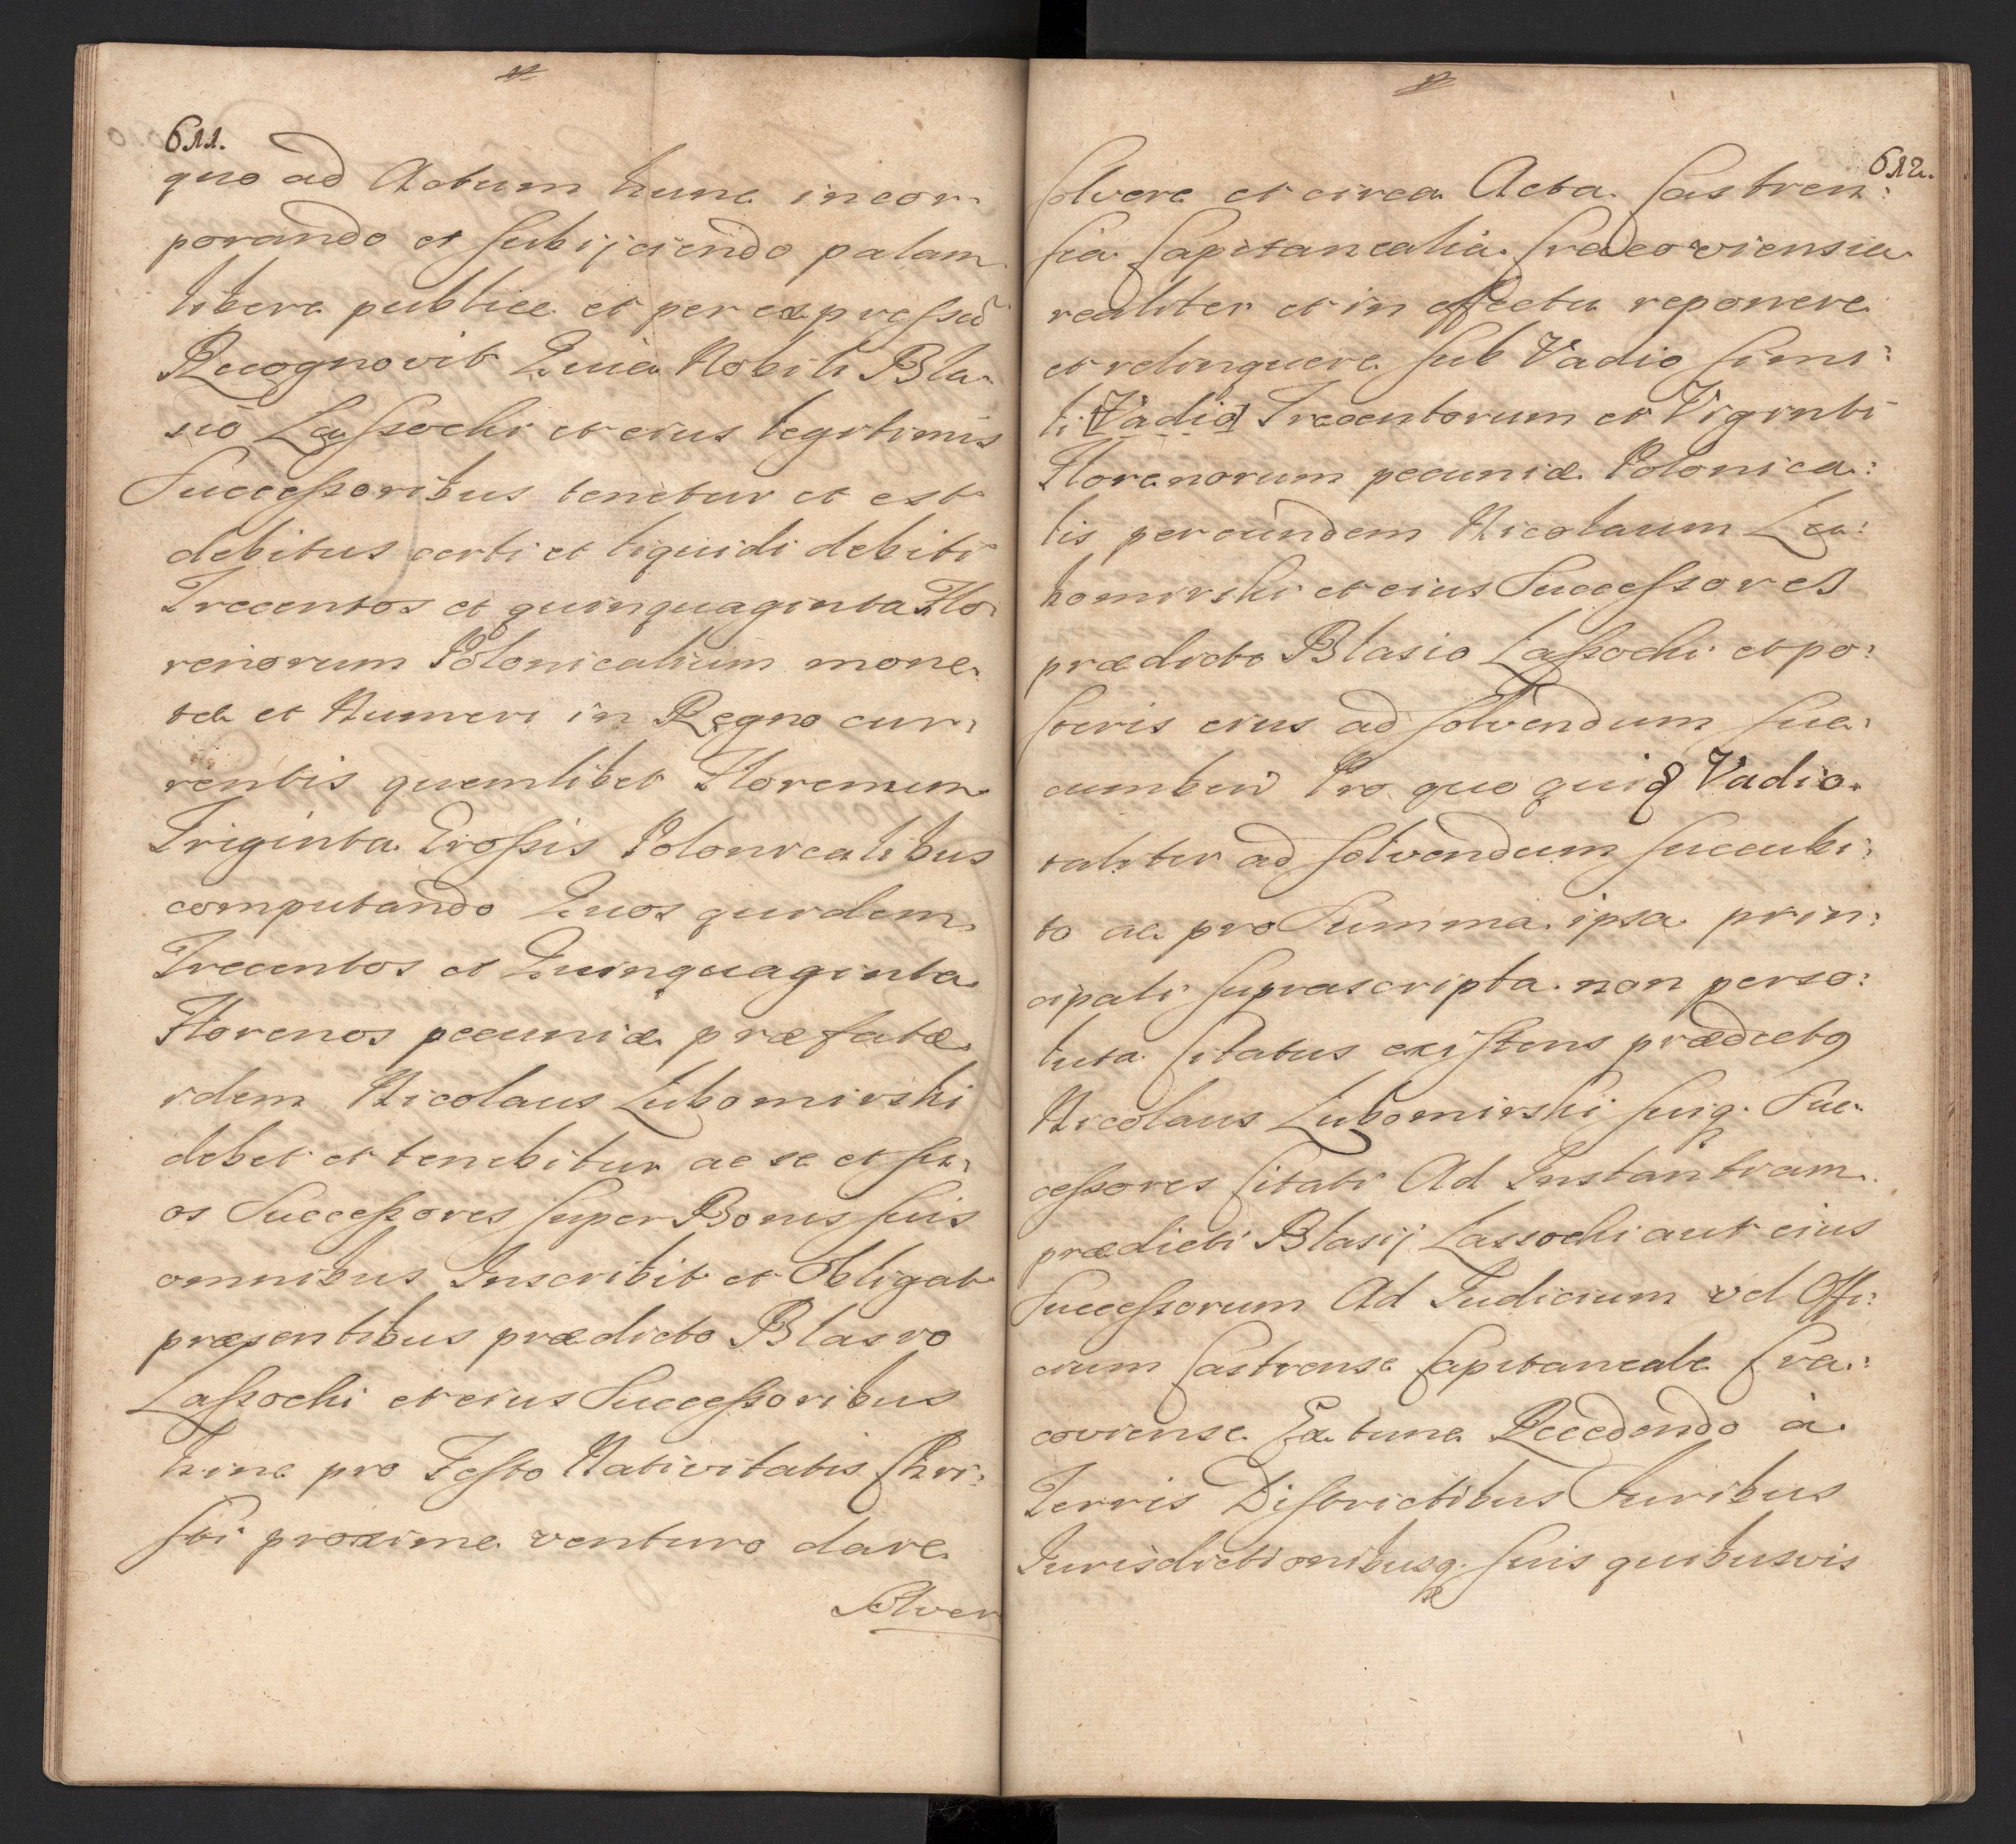 611.
quo ad Actum hunc incor-
porando et subijciendo palam
libere publice et per expressũ
Recognovit Quia Nobili Bla-
sio Lassochi et eius legitimis
Successoribus tenetur et est
debitus certi et liquidi debiti
Trecentos et quinquaginta Flo-
renorum Polonicalium mone-
tæ et Numeri in Regno cur-
rentis quemlibet Florenum
Triginta Grossis Polonicalibus
computando Quos quidem
Trecentos et Quinquaginta
Florenos pecuniæ præfatæ
idem Nicolaus Lubomirski
debet et tenebitur ac se et su-
os Successores super Bonis suis
omnibus Inscribit et Obligat
præsentibus prædicto Blasio
Lassochi et eius Successoribus
hinc pro Festo Nativitatis Chri-
sti proxime venturo dare
Solver
612.
solvere et circa Acta Castren:
sia Capitanealia Cracoviensia
realiter et in effectu reponere
et relinquere sub Vadio simi:
li [Vadio] Trecentorum et Viginti
Florenorum pecuniæ Polonica:
lis per eundem Nicolaum Lu:
bomirski et eius Successores
prædicto Blasio Lassochi et po:
steris eius ad solvendum suc:
cumben̄ Pro quo quiq Vadio
taliter ad solvendum succubi:
to ac pro Summa ipsa prin:
cipali suprascripta non perso:
luta Citatus existens prædictq
Nicolaus Lubomirski suiq. Suc-
cessores Citati Ad Instantiam
prædicti Blasij Lassochi aut eius
Successorum Ad Iudicium vel Offi:
cium Castrense Capitaneale Cra:
coviense Ex tunc Recedendo à
Terris Districtibus Iuribus
Iurisdictionibusq. suis quibusvis